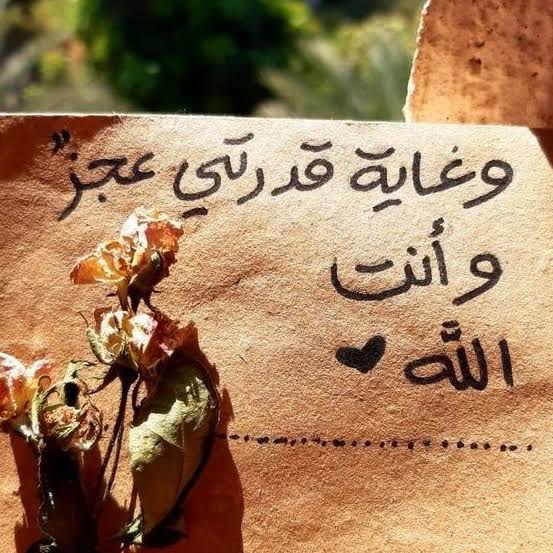 وغاية قدرتي عجزٌ
وأنت
اللَّه ♥